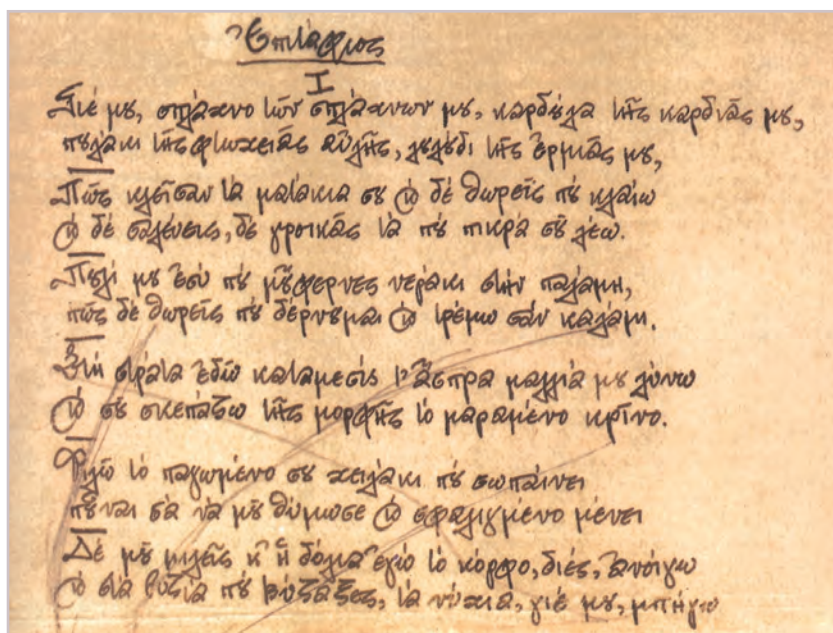 Ἐπιτάφιος
I
Γιέ μου, σπλάχνο τῶν σπλάχνων μου, καρδούλα τῆς καρδιᾶς μου,
πουλάκι τῆς φτωχειᾶς αὐλῆς, λουλούδι τῆς ἐρμιᾶς μου,
Πῶς κλεῖσαν τὰ ματάκια σου καὶ δὲ θωρεῖς ποὺ κλαίω
καὶ δὲ σαλεύεις, δὲ γροικᾶς τὰ ποὺ πικρὰ σοῦ λέω.
Πουλί μου ἐσὺ ποὺ μοῦφερνες νεράκι στὴν παλάμη,
πῶς δὲ θωρεῖς ποὺ δέρνουμαι καὶ τρέμω σὰν καλάμι.
Στὴ στράτα ἐδῶ καταμεσὶς τ' ἄσπρα μαλλιά μου λύνω
καὶ σοῦ σκεπάζω τῆς μορφῆς τὸ μαραμένο κρῖνο.
Φιλῶ τὸ παγωμένο σου χειλάκι ποὺ σωπαίνει
ποὖναι σὰ νὰ μοῦ θύμωσε καὶ σφαλιγμένο μένει
Δὲ μοῦ μιλεῖς κ' ἡ δόλια ἐγὼ τὸ κόρφο, διές, ἀνοίγω
καὶ στὰ βυζιὰ ποὺ βύζαξες, τὰ νύχια, γιέ μου, μπήγω